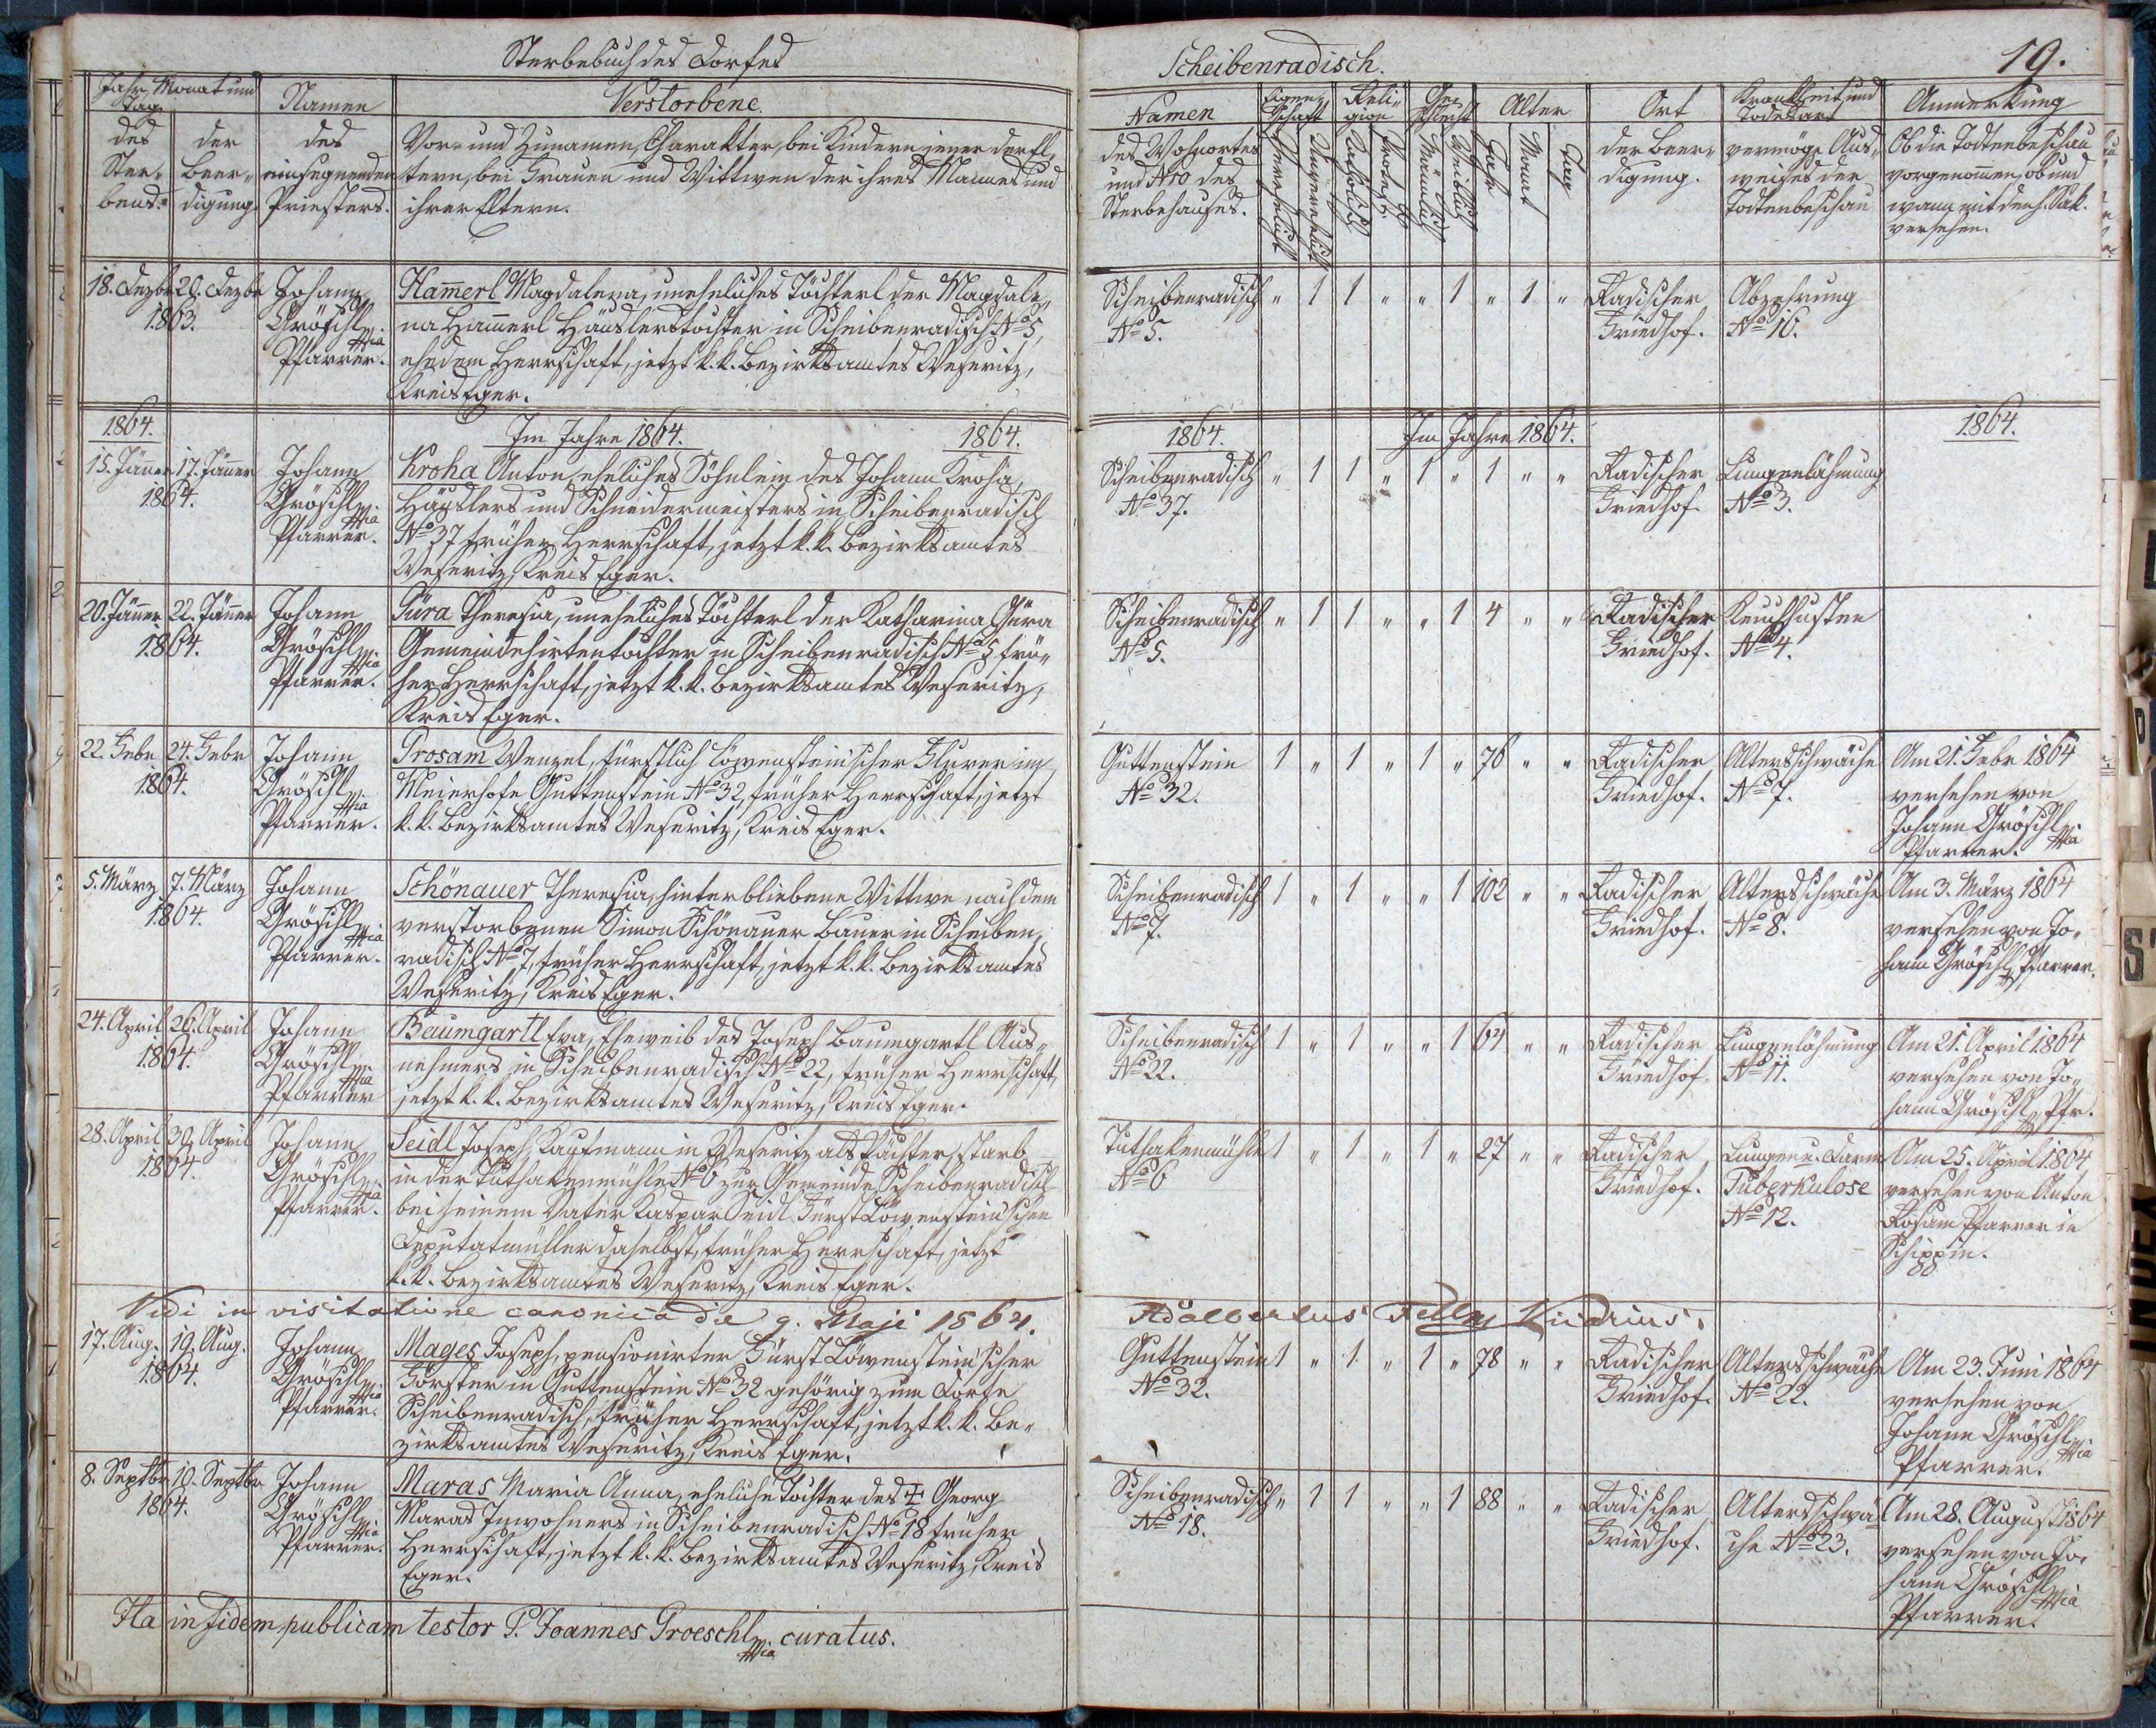 Sterbebuch des Dorfes
Scheibenradisch.
19.
Jahr, Monat und Tag
des Ster-
bens.
der Beer-
digung
Namen
des
einsegnenden
Priesters.
Verstorbene.
Vor- und Zunamen, Charakter, bei Kindern jener der El-
tern, bei Frauen und Wittwen der ihres Mannes und
ihrer Eltern.
Namen
des Wohnortes
und Nro des
Sterbehauses.
Eigen-
schaft
Verehelicht
Unverehelicht
Reli-
gion
Katholisch
Protest.
Ge-
schlecht
Männlich
Weiblich
Alter
Jahr
Monat
Tag
Ort
der Beer-
digung.
Krankheit und
Todesart
vermöge Aus-
weises der
Todtenbeschau
Anmerkung
Ob die Todtenbeschau
vorgenommen, ob und
wann mit den h. Sak.
versehen.
18. Dezbr 20. Dezbr
1863.
Johann
Gröschl mpia
Pfarrer.
Hamerl Magdalena, uneheliches Töchterl der Magdale-
na Hamerl Häuslerstochter in Scheibenradisch No 5,
ehedem Herrschaft, jetzt k. k. Bezirksamtes Weseritz,
Kreis Eger.
Scheibenradisch
No 5.
" 1 1 " " 1 " 1 "
Radischer
Friedhof.
Abzehrung
No 16.
1864.
Im Jahre 1864.
1864.
1864.
Im Jahre 1864.
1864.
15. Jäner 17. Jäner
1864.
Johann
Gröschl mpia
Pfarrer.
Kroha Anton, eheliches Söhnlein des Johann Kroha,
Häuslers und Schneidermeisters in Scheibenradisch
No 37 früher Herrschaft, jetzt k. k. Bezirksamtes
Weseritz, Kreis Eger.
Scheibenradisch
No 37.
" 1 1 " 1 " 1 " "
Radischer
Friedhof.
Lungenlähmung
No 3.
20. Jäner 22. Jäner
1864.
Johann
Gröschl mpia
Pfarrer.
Güra Theresia, uneheliches Töchterl der Katharina Güra
Gemeindehirtentochter in Scheibenradisch No 5 frü-
her Herrschaft, jetzt k. k. Bezirksamtes Weseritz,
Kreis Eger.
Scheibenradisch
No 5.
" 1 1 " " 1 4 " "
Radischer
Friedhof.
Keuchhusten
No 4.
22. Febr 24. Febr
1864.
Johann
Gröschl mpia
Pfarrer.
Prosam Wenzel, fürstlich Löwenstein'scher Flurer im
Meierhofe Guttenstein No 32, früher Herrschaft, jetzt
k. k. Bezirksamtes Weseritz, Kreis Eger.
Guttenstein
No 32.
1 " 1 " 1 " 76 " "
Radischer
Friedhof.
Altersschwäche
No 7.
Am 21. Febr 1864
versehen von
Johann Gröschl mpia
Pfarrer.
5. März 7. März
1864.
Johann
Gröschl mpia
Pfarrer.
Schönauer Theresia, hinterbliebene Wittwe nach dem
verstorbenen Simon Schönauer Bauer in Scheiben-
radisch No 7, früher Herrschaft, jetzt k. k. Bezirksamtes
Weseritz, Kreis Eger.
Scheibenradisch
No 7.
1 " 1 " " 1 102 " "
Radischer
Friedhof.
Altersschwäche
No 8.
Am 3. März 1864
versehen von Jo-
hann Gröschl, Pfarrer.
24. April 26. April
1864.
Johann
Gröschl mpia
Pfarrer
Baumgartl Eva, Eheweib des Joseph Baumgartl Aus-
nehmers in Scheibenradisch No 22, früher Herrschaft,
jetzt k. k. Bezirksamtes Weseritz, Kreis Eger.
Scheibenradisch
No 22.
1 " 1 " " 1 64 " "
Radischer
Friedhof.
Lungenlähmung
No 11.
Am 21. April 1864
versehen von Jo-
hann Gröschl, Pfr.
28. April 30. April
1864.
Johann
Gröschl mpia
Pfarrer.
Seidl Joseph, Kaufmann in Weseritz als Pächter, starb
in der Tuthakenmühle No 6 zur Gemeinde Scheibenradisch
bei seinem Vater Kaspar Seidl Fürst Löwenstein'schen
Deputatmüller daselbst, früher Herrschaft, jetzt
k. k. Bezirksamtes Weseritz, Kreis Eger.
Tuthakenmühle
No 6
1 " 1 " 1 " 27 " "
Radischer
Friedhof.
Lungen u. Darm
Tuberkulose
No 12.
Am 25. April 1864
versehen von Anton
Rosam Pfarrer in
Schippin.
Vidi in visitatione canonica die 9. Maji 1864.
Adalbertus Vicarius.
17. Aug. 19. Aug.
1864.
Johann
Gröschl mpia
Pfarrer.
Mages Joseph, pensionirter Fürst Löwenstein'scher
Förster in Guttenstein No 32 gehörig zum Dorfe
Scheibenradisch, früher Herrschaft, jetzt k. k. Be-
zirksamtes Weseritz, Kreis Eger.
Guttenstein
No 32.
1 " 1 " 1 " 78 " "
Radischer
Friedhof.
Altersschwäche
No 22.
Am 23. Juni 1864
versehen von
Johann Gröschl mpia
Pfarrer.
8. Septbr 10. Septbr
1864.
Johann
Gröschl mpia
Pfarrer.
Maras Maria Anna, eheliche Tochter des ‡ Georg
Maras Inwohners in Scheibenradisch No 18 früher
Herrschaft, jetzt k. k. Bezirksamtes Weseritz, Kreis
Eger.
Scheibenradisch
No 18.
" 1 1 " " 1 88 " "
Radischer
Friedhof.
Altersschwä-
che No 23.
Am 28. August 1864
versehen von Jo-
hann Gröschl mpia
Pfarrer.
Ita in fidem publicam testor P. Joannes Groeschl mpia curatus.